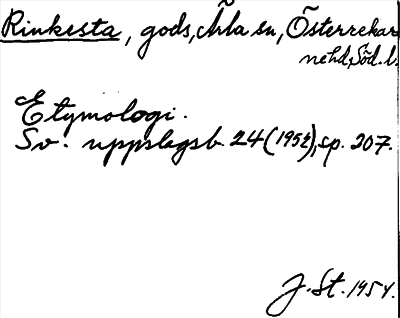 Rinkesta, gods, Ärla sn, Österrekar
nehd, Söd. l.
Etymologi.
Sv. uppslagsb. 24 (1952), sp. 207.
J. St. 1954.